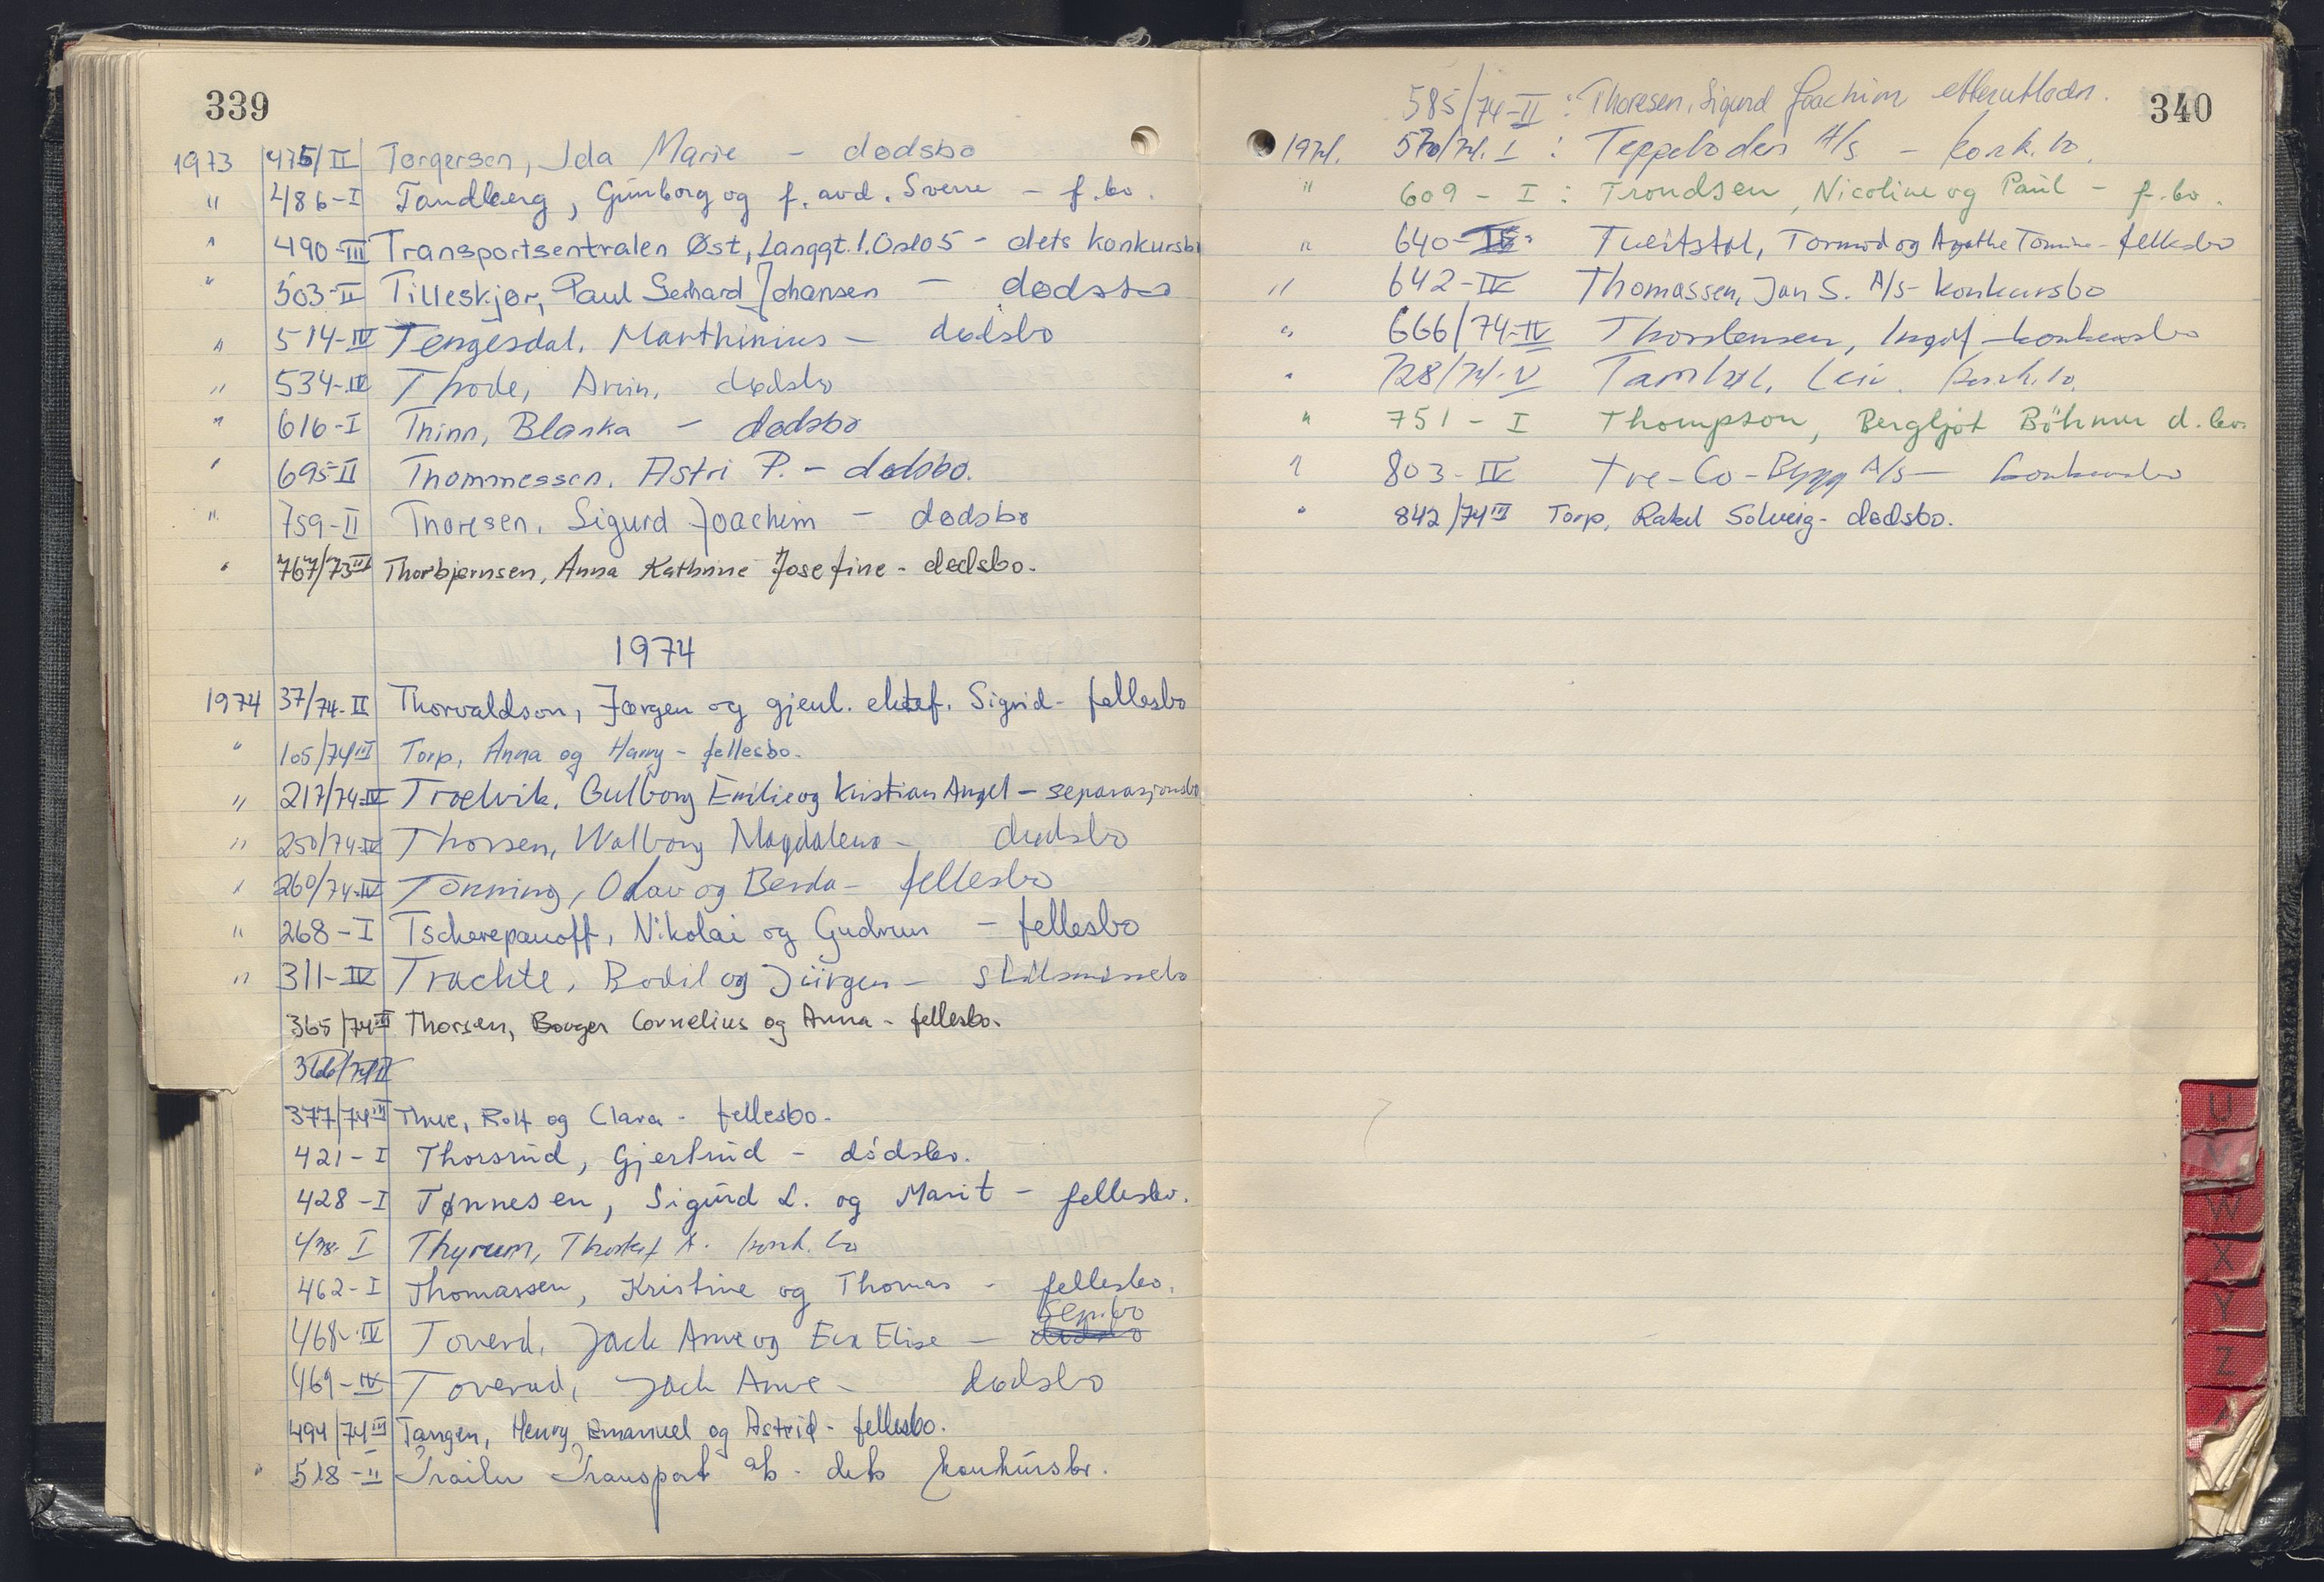 339
1973 475/II Torgersen, Ida Marie - dødsbo
" 486-I Tandberg, Gunborg og f. avd. Sverre - f.bo.
" 490-III Transportsentralen Øst, Langgt. 1. Oslo 5 - dets konkursbo
" 503-II Tilleskjør, Paul Gerhard Johansen - dødsbo
" 514-IV Tengesdal, Marthinius - dødsbo
" 534-IV Thode, Arvin, dødsbo
" 616-I Thinn, Blanka - dødsbo
" 695-II Thommessen, Astri P. - dødsbo.
" 759-II Thoresen, Sigurd Joachim - dødsbo
" 767/73 III Thorbjørnsen, Anna Kathrine Josefine - dødsbo.
1974
1974 37/74-II Thorvaldson, Jørgen og gjenl. ektef. Sigrid - fellesbo
" 105/74 III Torp, Anna og Harry - fellesbo.
" 217/74-IV Trælvik, Gulborg Emilie og Kristian Angel - separasjonsbo
" 250/74-IV Thorsen, Walborg Magdalena - dødsbo
" 260/74-IV Tønning, Olav og Berda - fellesbo
" 268-I Tscherepanoff, Nikolai og Gudrun - fellesbo
" 311-IV Trachte, Bodil og Jürgen - skilsmissebo
365/74 III Thorsen, Borger Cornelius og Anna - fellesbo.
366/74 II
377/74 III Thue, Rolf og Clara - fellesbo.
421-I Thorsrud, Gjertrud - dødsbo.
428-I Tønnesen, Sigurd L. og Marit - fellesbo.
438-I Thyrum, A. konk. bo
462-I Thomassen, Kristine og Thomas - fellesbo.
Sep.bo
468-IV Toverud, Jack Arne og Eva Elise - dødsbo
469-IV Toverud, Jack Arne - dødsbo
494/74 III Tangen, Henry Emanuel og Astrid - fellesbo.
" 518-II Trailer Transport a/s - dets konkursbo.
340
585/74-II: Thoresen, Sigurd Joachim etterutlodn.
1974. 570/74. I: Teppeboden A/S - konk.bo.
" 609 - I: Trondsen, Nicoline og Paul - f.bo.
" 640-IV Tveitstøl, Tormod og Agathe Tomine - fellesbo
" 642-IV Thomassen, Jan S. A/S - konkursbo
" 666/74-IV Thorstensen, Ingolf - konkursbo
" 728/74-V Leiv. konk.bo.
" 751 - I Thompson, Bergljot Böhmer d.bo.
" 803-IV Tre-Co-Bygg A/S - konkursbo
" 842/74 III Torp, Rakel Solveig - dødsbo.
U
V
W
X
Y
Z